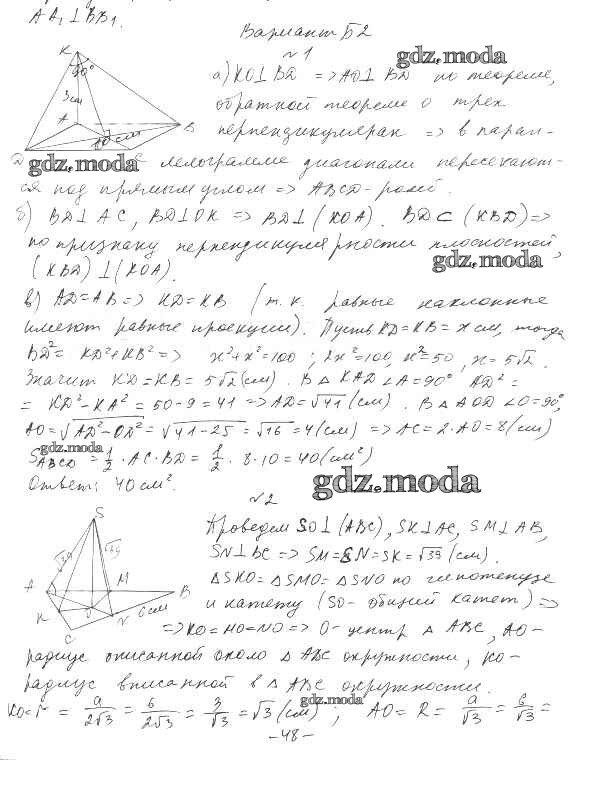 AA₁ ⊥ BB₁.
Вариант Б2
№1
gdz.moda
K
90°
3 см
A
B
10 см
а) KO ⊥ BD => AO ⊥ BD по теореме,
обратной теореме о трех
перпендикулярах => в парал-
gdz.moda
лелограмме диагонали пересекают-
ся под прямым углом => ABCD - ромб.
б) BD ⊥ AC, BD ⊥ OK => BD ⊥ (KOA). BD ⊂ (KBD) =>
по признаку перпендикулярности плоскостей,
gdz.moda
(KBD) ⊥ (KOA).
в) AD = AB => KD = KB (т.к. равные наклонные
имеют равные проекции). Пусть KD = KB = x см, тогда
BD² = KD² + KB² => x² + x² = 100; 2x² = 100, x² = 50, x = 5√2.
Значит KD = KB = 5√2 (см). В △ KAD ∠A = 90° AD² =
= KD² - KA² = 50 - 9 = 41 => AD = √41 (см). В △ AOD ∠O = 90°,
AO = √AD² - OD² = √41 - 25 = √16 = 4 (см) => AC = 2·AO = 8 (см)
gdz.moda
S ABCD = 1/2 · AC · BD = 1/2 · 8 · 10 = 40 (см²)
Ответ: 40 см².
gdz.moda
№2
S
√39
√39
A
M
B
K
O
N
6 см
C
Проведем SO ⊥ (ABC), SK ⊥ AC, SM ⊥ AB,
SN ⊥ BC => SM = SN = SK = √39 (см).
△SKO = △SMO = △SNO по гипотенузе
и катету (SO - общий катет) =>
=> KO = MO = NO => O - центр △ ABC, AO -
радиус описанной около △ ABC окружности, KO -
радиус вписанной в △ ABC окружности.
gdz.moda
KO = r = a/2√3 = 6/2√3 = 3/√3 = √3 (см), AO = R = a/√3 = 6/√3 =
- 48 -